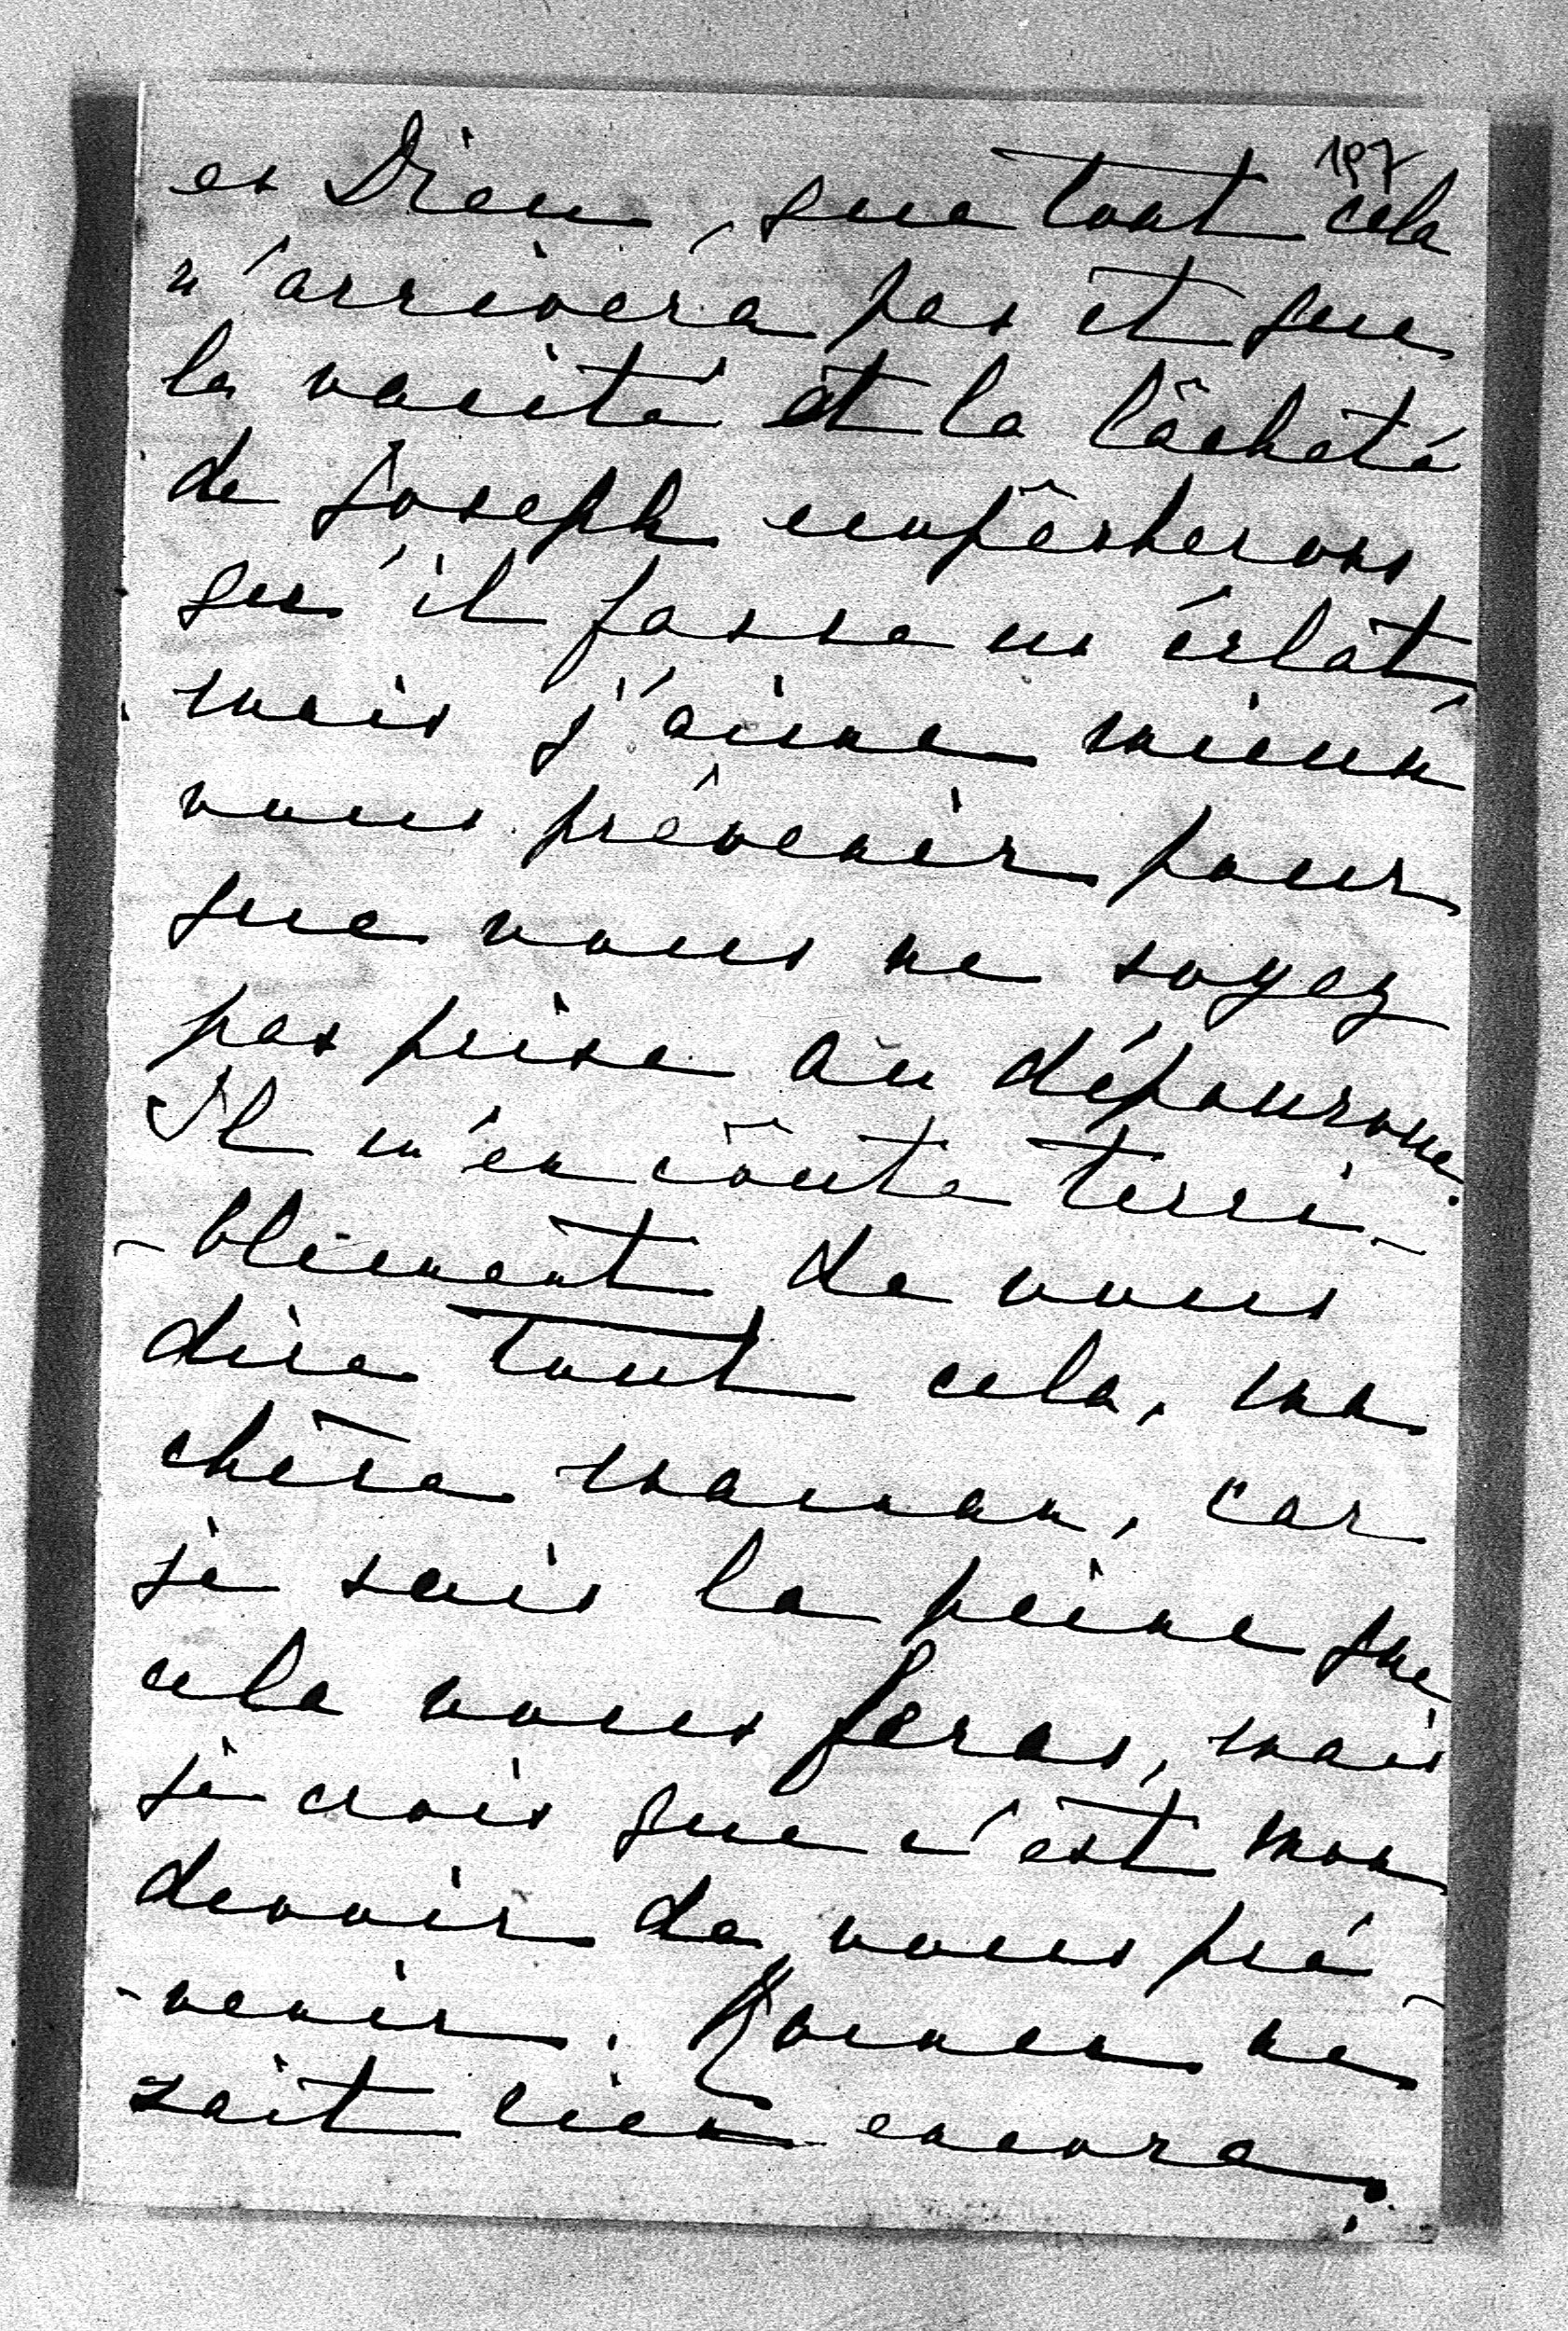 197
en Dieu, que tout cela
n'arrivera pas et que
la vanité et la lâcheté
de Joseph empêcheront
qu'il fasse un éclat
mais j'aime mieux
vous prévenir pour
que vous ne soyez
pas prise au dépourvue.
Il m'en coûte terri-
-blement de vous
dire tout cela, ma
chère maman, car
je sais la peine que
cela vous feras, mais
je crois que c'est mon
devoir de vous pré-
-venir. ne
sait rien encore.